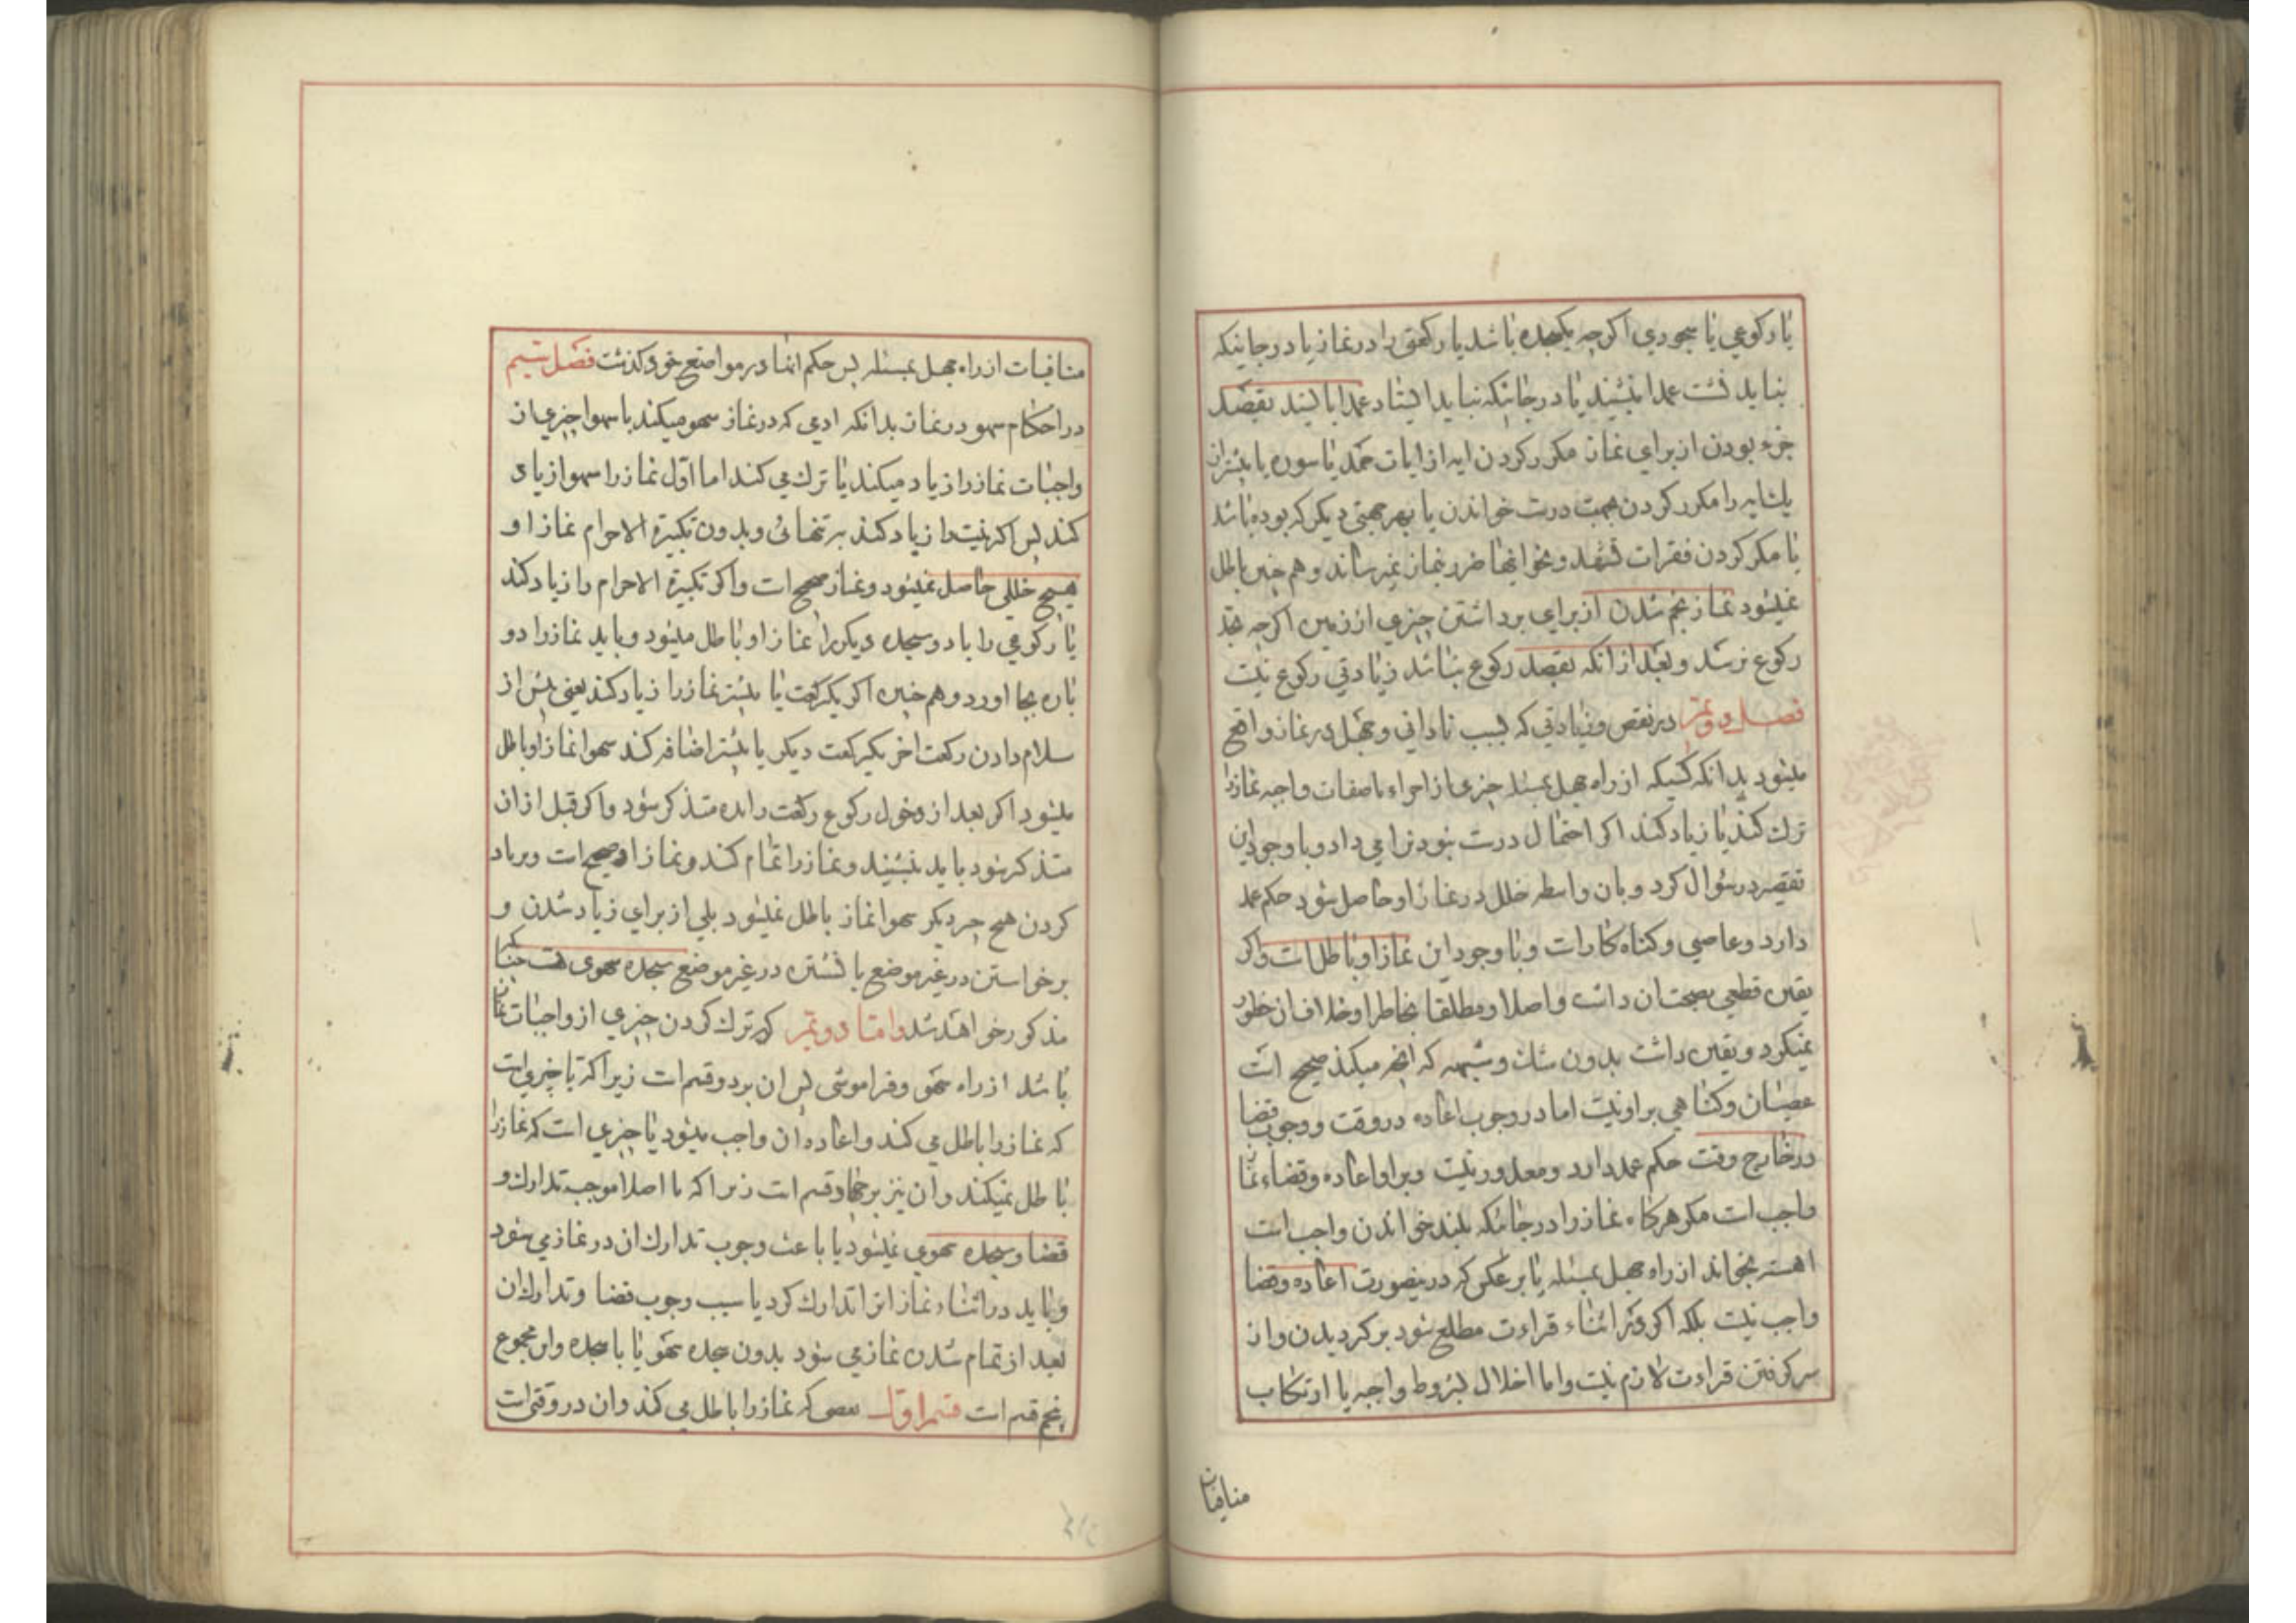 یا رکوعی یا سجودی اکرچه یکسجده باشد یا رکعتی را در نماز یا در جائیکه
نباید نشست عمدا بنشیند یا در جائیکه نباید ایستاد عمدا بایستد بقصد
جزء بودن از برای نماز مکرر کردن ایه از ایات حمد یا سوره یا بیشتر از
یک ایه را مکرر کردن بجهت درست خواندن یا بهر جهتی دیکر که بوده باشد
یا مکرر کردن فقرات تشهد و نحو اینها ضرر بنماز نمیرساند و هم چنین باطل
نمیشود نماز بخم شدن از برای برداشتن چیزی از زمین اکرچه بحد
رکوع برسد و بعد از انکه بقصد رکوع نباشد زیادتی رکوع نیست
فصل دویم در نقص و زیادتی که بسبب نادانی و جهل در نماز واقع
میشود بدانکه کسیکه از راه جهل بمسئله چیزی از اجزاء یا صفات واجبه نماز را
ترک کند یا زیاد کند اکر احتمال درست نبودنرا می داد و با وجود این
تقصیر در سؤال کرد و بان واسطه خلل در نماز او حاصل شود حکم عمد
دارد و عاصی و کناه کار است و با وجود این نماز او باطل است و اکر
یقین قطعی بصحت ان داشت و اصلا و مطلقا بخاطر او خلاف ان خطور
نمیکرد و یقین داشت بدون شک و شبهه که انچه میکند صحیح است
عصیان و کناهی بر او نیست اما در وجوب اعاده در وقت و وجوب قضا
در خارج وقت حکم عمد دارد و معذور نیست و بر او اعاده و قضاء نماز
واجب است مکر هرکاه نماز را در جائیکه بلند خواندن واجب است
اهسته بخواند از راه جهل بمسئله یا بر عکس که درینصورت اعاده و قضا
واجب نیست بلکه اکر در اثناء قراءت مطلع شود برکردیدن و از
سر کرفتن قراءت لازم نیست و اما اخلال بشروط واجبه یا ارتکاب
منافیات
منافیات از راه جهل بمسئله پس حکم انها در مواضع خود کذشت فصل سیم
در احکام سهو در نماز بدانکه ادمی که در نماز سهو میکند یا سهوا چیزی از
واجبات نماز را زیاد میکند یا ترک می کند اما اول نماز را سهوا زیادی
کند پس اکر نیت را زیاد کند بر تنهائی و بدون تکبیرة الاحرام نماز او
هیچ خللی حاصل نمیشود و نماز صحیح است و اکر تکبیرة الاحرام را زیاد کند
یا رکوعی را یا دو سجده دیکر را نماز او باطل میشود و باید نماز را دو
باره بجا اورد و هم چنین اکر یکرکعت یا بیشتر نماز را زیاد کند یعنی پس از
سلام دادن رکعت اخر یکرکعت دیکر یا بیشتر اضافه کند سهوا نماز او باطل
میشود اکر بعد از دخول رکوع رکعت زایده متذکر شود و اکر قبل از ان
متذکر شود باید بنشیند و نماز را تمام کند و نماز او صحیح است و زیاد
کردن هیچ چیز دیکر سهوا نماز باطل نمیشود بلی از برای زیاد شدن و
برخواستن در غیر موضع یا نشستن در غیر موضع سجده سهوی هست چنانکه
مذکور خواهد شد و اما دویم که ترک کردن چیزی از واجبات نماز
باشد از راه سهو و فراموشی پس ان بر دو قسم است زیرا که یا چیزیست
که نماز را باطل می کند و اعاده ان واجب میشود یا چیزی است که نماز را
باطل نمیکند و ان نیز بر چهار قسم است زیرا که یا اصلا موجب تدارک و
قضا و سجده سهوی نمیشود یا باعث وجوب تدارک ان در نماز می شود
و باید در اثناء نماز انرا تدارک کرد یا سبب وجوب قضا و تدارک ان
بعد از تمام شدن نماز می شود بدون سجده سهو یا با سجده و این مجموع
پنج قسم است قسم اول نقصی که نماز را باطل می کند و ان در وقتی است